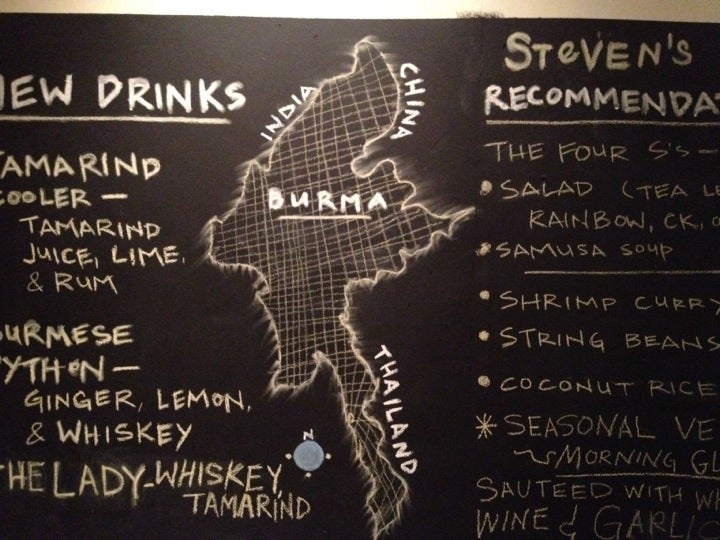 NEW DRINKS
TAMARIND
COOLER —
TAMARIND
JUICE, LIME,
& RUM
BURMESE
PYTHON —
GINGER, LEMON,
& WHISKEY
THE LADY-WHISKEY,
TAMARIND
INDIA
CHINA
BURMA
THAILAND
N
STEVEN'S
RECOMMENDA
THE FOUR S'S —
• SALAD (TEA L
RAINBOW, CK,
• SAMUSA SOUP
• SHRIMP CURRY
• STRING BEANS
• COCONUT RICE
* SEASONAL VE
~MORNING GL
SAUTEED WITH WI
WINE & GARLIC